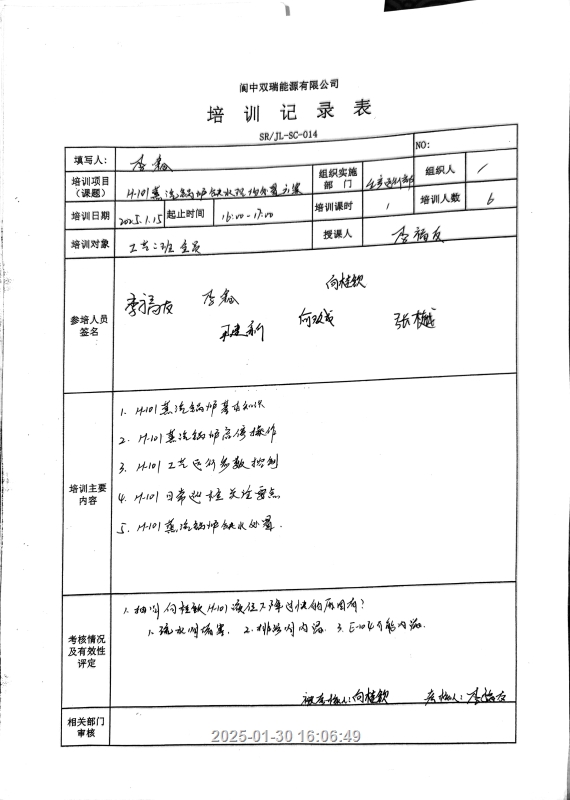 阆中双瑞能源有限公司
培训记录表
SR/JL-SC-014
填写人: 李鑫 NO:
培训项目(课题) H-101蒸汽锅炉缺水现场处置方案 组织实施部门 生产运行部 组织人 /
培训日期 2025.1.15 起止时间 16:00-17:00 培训课时 1 培训人数 6
培训对象 工艺二班全员 授课人 李福友
参培人员签名
向桂钦
李福友 李鑫
何玖成 张樾
培训主要内容
1. H-101蒸汽锅炉基本知识
2. H-101蒸汽锅炉启停操作
3. H-101工艺运行参数控制
4. H-101日常巡检关注要点
5. H-101蒸汽锅炉缺水处置.
考核情况及有效性评定
1. 抽问向桂钦H-101液位下降过快的原因有?
1. 疏水阀堵塞. 2. 排污阀内漏. 3. E-104可能内漏.
被考核人: 向桂钦 考核人: 李福友
相关部门审核
2025-01-30 16:06:49